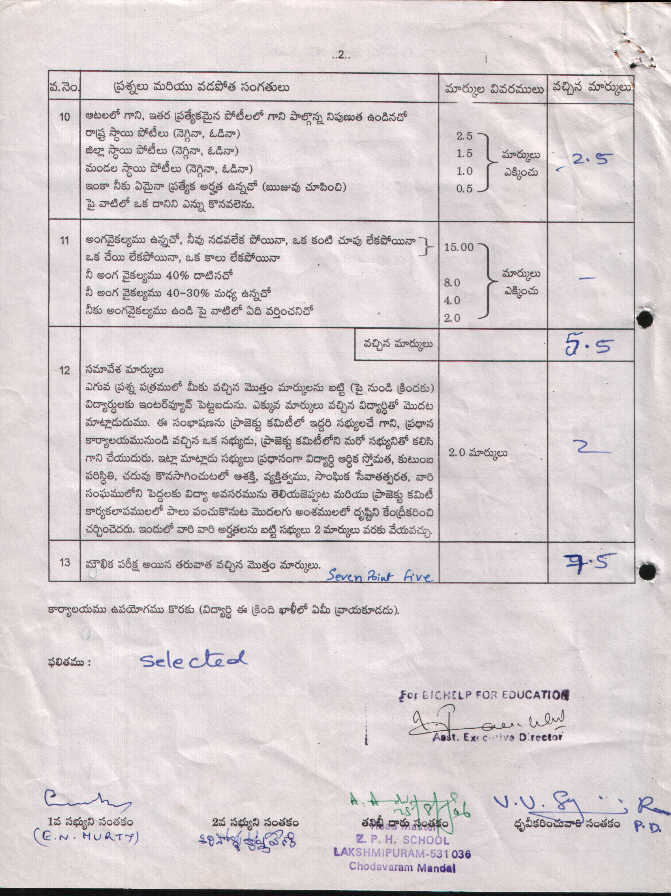 ..2..
వ.నెం. ప్రశ్నలు మరియు వడపోత సంగతులు మార్కుల వివరములు వచ్చిన మార్కులు
10 ఆటలలో గాని, ఇతర ప్రత్యేకమైన పోటీలలో గాని పాల్గొన్న నిపుణుత ఉండినచో
రాష్ట్ర స్థాయి పోటీలు (నెగ్గినా, ఓడినా) 2.5
జిల్లా స్థాయి పోటీలు (నెగ్గినా, ఓడినా) 1.5 మార్కులు 2.5
మండల స్థాయి పోటీలు (నెగ్గినా, ఓడినా) 1.0 ఎక్కించు
ఇంకా నీకు ఏమైనా ప్రత్యేక అర్హత ఉన్నచో (ఋజువు చూపించి) 0.5
పై వాటిలో ఒక దానిని ఎన్ను కొనవలెను.
11 అంగవైకల్యము ఉన్నచో, నీవు నడవలేక పోయినా, ఒక కంటి చూపు లేకపోయినా 15.00
ఒక చేయి లేకపోయినా, ఒక కాలు లేకపోయినా
నీ అంగ వైకల్యము 40% దాటినచో 8.0 మార్కులు –
నీ అంగ వైకల్యము 40-30% మధ్య ఉన్నచో 4.0 ఎక్కించు
నీకు అంగవైకల్యము ఉండి పై వాటిలో ఏది వర్తించనిచో 2.0
వచ్చిన మార్కులు 5.5
12 సమావేశ మార్కులు
ఎగువ ప్రశ్న పత్రములో మీకు వచ్చిన మొత్తం మార్కులను బట్టి (పై నుండి క్రిందకు)
విద్యార్థులకు ఇంటర్వ్యూవ్ పెట్టబడును. ఎక్కువ మార్కులు వచ్చిన విద్యార్థితో మొదట
మాట్లాడుదుము. ఈ సంభాషణను ప్రాజెక్టు కమిటీలో ఇద్దరి సభ్యులచే గాని, ప్రధాన
కార్యాలయమునుండి వచ్చిన ఒక సభ్యుడు, ప్రాజెక్టు కమిటీలోని మరో సభ్యునితో కలిసి
గాని చేయుదురు. ఇట్లా మాట్లాడు సభ్యులు ప్రధానంగా విద్యార్థి ఆర్థిక స్తోమత, కుటుంబ 2.0 మార్కులు 2
పరిస్థితి, చదువు కొనసాగించుటలో ఆశక్తి, వ్యక్తిత్వము, సాంఘిక సేవాతత్పరత, వారి
సంఘములోని పెద్దలకు విద్యా అవసరమును తెలియజెప్పుట మరియు ప్రాజెక్టు కమిటీ
కార్యకలాపములలో పాలు పంచుకొనుట మొదలగు అంశములలో దృష్టిని కేంద్రీకరించి
చర్చించెదరు. ఇందులో వారి వారి అర్హతలను బట్టి సభ్యులు 2 మార్కులు వరకు వేయవచ్చు.
13 మౌఖిక పరీక్ష అయిన తరువాత వచ్చిన మొత్తం మార్కులు. 7.5
Seven Point five
కార్యాలయము ఉపయోగము కొరకు (విద్యార్థి ఈ క్రింది ఖాళీలో ఏమీ వ్రాయకూడదు).
ఫలితము : selected
For EICHELP FOR EDUCATION
Asst. Executive Director
1వ సభ్యుని సంతకం 2వ సభ్యుని సంతకం తనిఖీ దారు సంతకం ధృవీకరించువారి సంతకం
(E.N. MURTY) P.D.
Head Master
Z. P. H. SCHOOL
LAKSHMIPURAM-531 036
Chodavaram Mandal